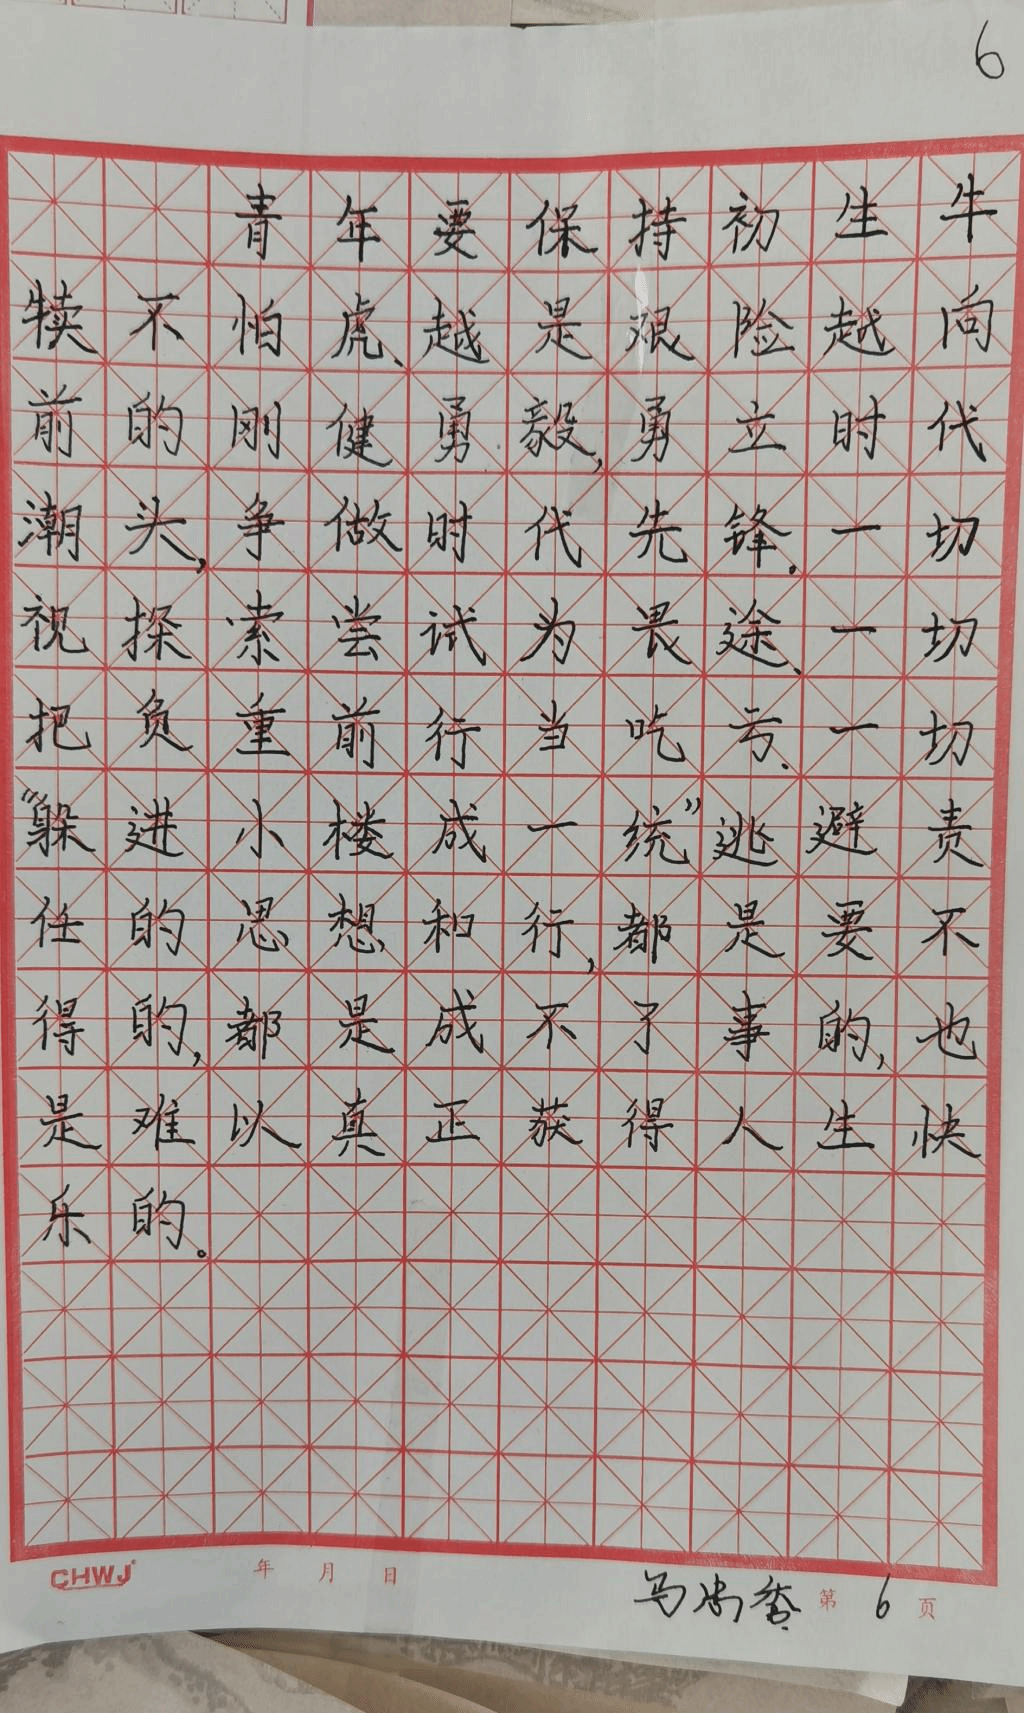 6
青年要保持初生牛
犊不怕虎、越是艰险越向
前的刚健勇毅,勇立时代
潮头,争做时代先锋。一切
视探索尝试为畏途、一切
把负重前行当吃亏、一切
“躲进小楼成一统”逃避责
任的思想和行,都是要不
得的,都是成不了事的,也
是难以真正获得人生快
乐的。
CHWJ 年 月 日 第 6 页